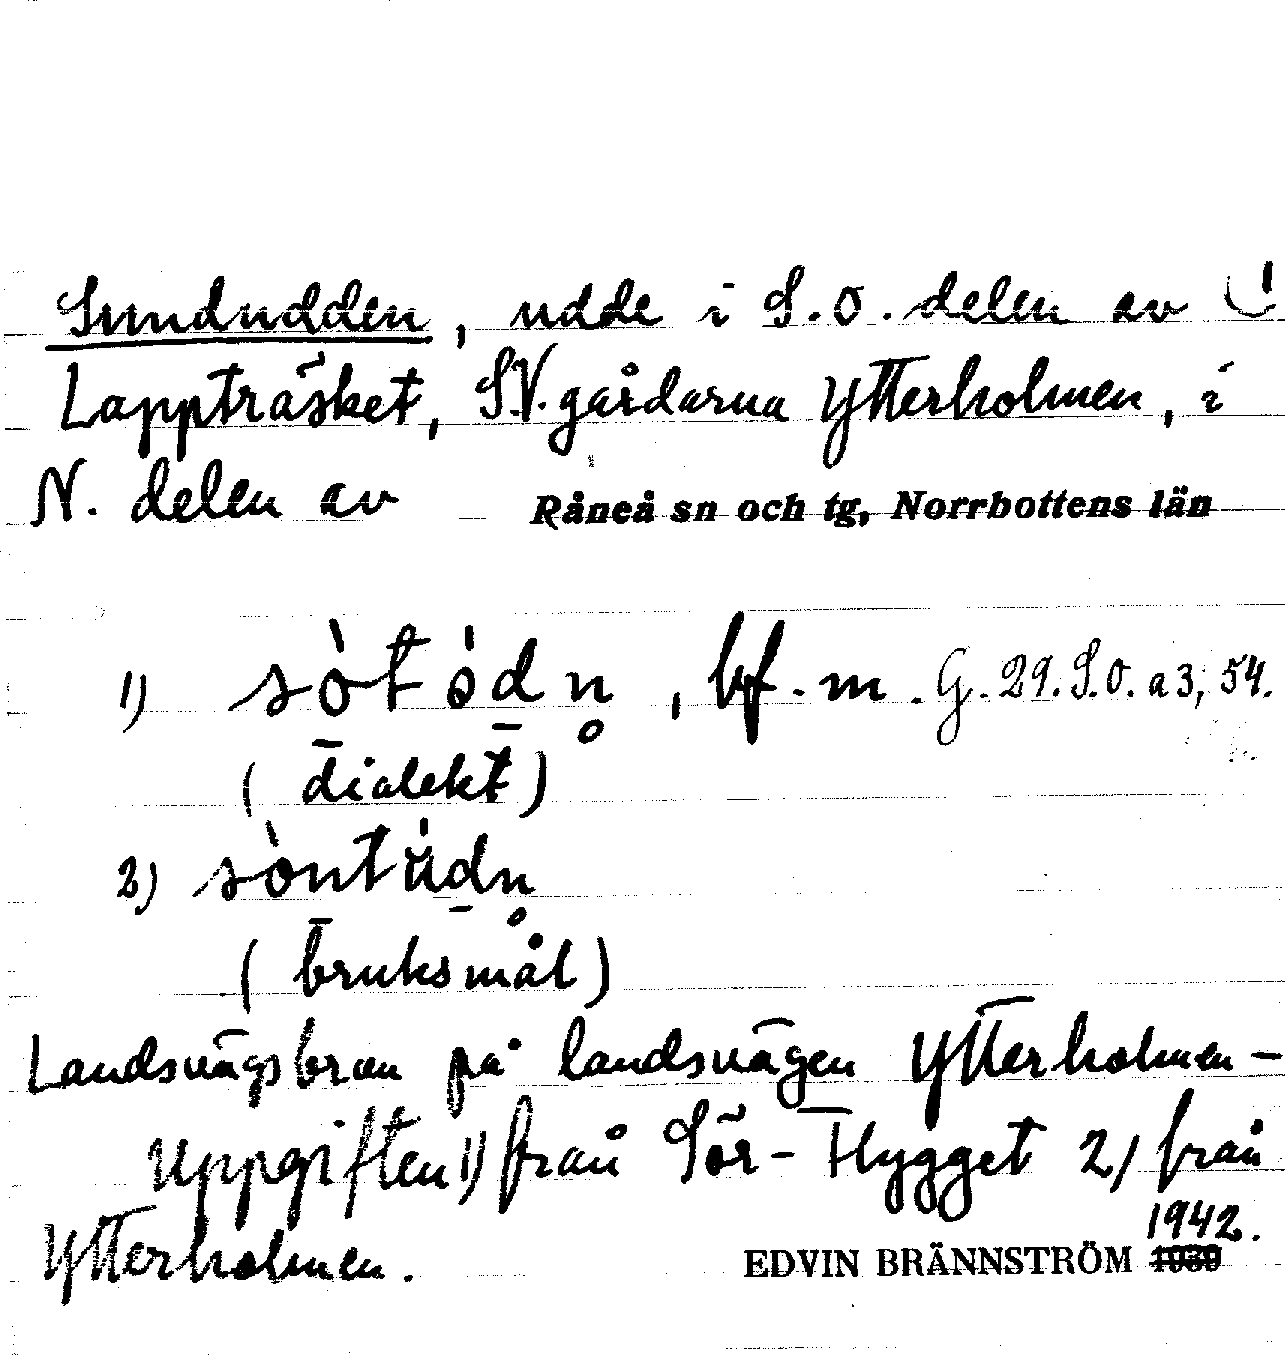 Sundudden, udde i S.O. delen av
Lappträsket, S.V. gårdarna Ytterholmen, i
N. delen av Råneå sn och tg, Norrbottens län
1) sòtódn̥, bf. m. G. 29. S.O. a 3; 54.
(dialekt)
2) sòntúdn̥
(bruksmål)
Landsvägsbron på landsvägen Ytterholmen -
Uppgiften 1) från Sör-Flygget 2) från
Ytterholmen. 1942.
EDVIN BRÄNNSTRÖM 1939